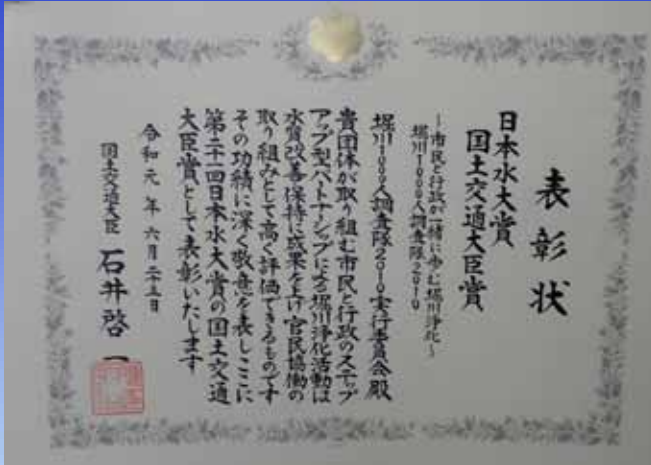 表彰状
日本水大賞
国土交通大臣賞
~市民と行政が一緒に歩む堀川浄化~
堀川1000人調査隊2010
堀川1000人調査隊2010実行委員会殿
貴団体が取り組む市民と行政のステップ
アップ型パートナーシップによる堀川浄化活動は
水質改善保持に成果を上げ官民協働の
取り組みとして高く評価できるものです
その功績に深く敬意を表しここに
第二十一回日本水大賞の国土交通
大臣賞として表彰いたします
令和元年六月二十五日
国土交通大臣 石井啓一